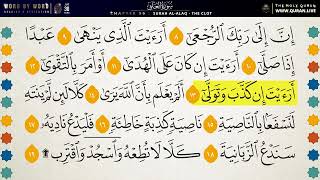 WORD BY WORD
CHAPTER 96 SURAH AL-ALAQ - THE CLOT
THE HOLY QURAN
WWW.QURAN.LIVE
إِنَّ إِلَىٰ رَبِّكَ ٱلرُّجْعَىٰٓ ٨ أَرَءَيْتَ ٱلَّذِى يَنْهَىٰ ٩ عَبْدًا
إِذَا صَلَّىٰٓ ١٠ أَرَءَيْتَ إِن كَانَ عَلَى ٱلْهُدَىٰٓ ١١ أَوْ أَمَرَ بِٱلتَّقْوَىٰٓ ١٢
أَرَءَيْتَ إِن كَذَّبَ وَتَوَلَّىٰٓ ١٣ أَلَمْ يَعْلَم بِأَنَّ ٱللَّهَ يَرَىٰ ١٤ كَلَّا لَئِن لَّمْ يَنتَهِ
لَنَسْفَعًۢا بِٱلنَّاصِيَةِ ١٥ نَاصِيَةٍ كَٰذِبَةٍ خَاطِئَةٍ ١٦ فَلْيَدْعُ نَادِيَهُۥ ١٧
سَنَدْعُ ٱلزَّبَانِيَةَ ١٨ كَلَّا لَا تُطِعْهُ وَٱسْجُدْ وَٱقْتَرِب ۩ ١٩